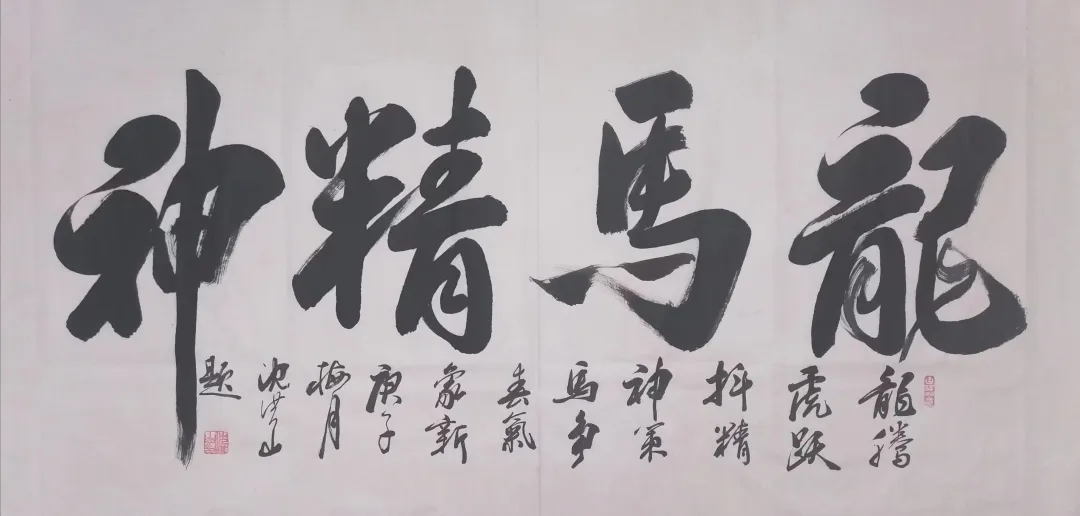 龍馬精神
龍騰
虎跃
抖精
神策
馬争
春氣
象新
庚子
梅月
沈洪山
题